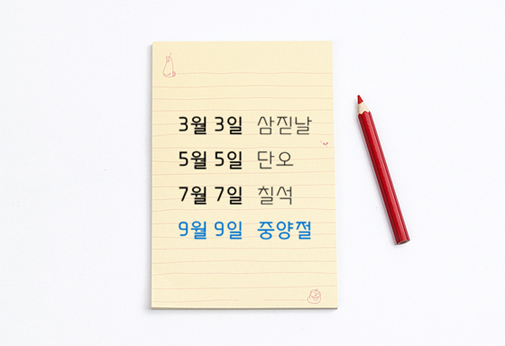 3월 3일 삼짇날
5월 5일 단오
7월 7일 칠석
9월 9일 중양절